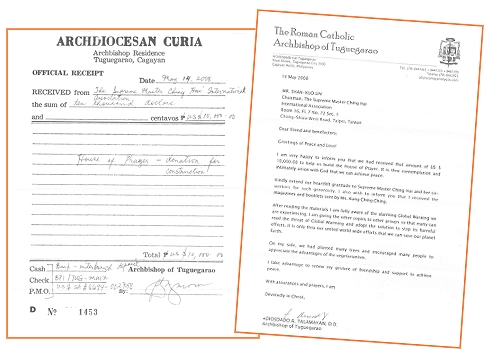 ARCHDIOCESAN CURIA
Archbishop Residence
Tuguegarao, Cagayan
OFFICIAL RECEIPT
Date May 14, 2008
RECEIVED from The Supreme Master Ching Hai International
Association
the sum of ten thousand dollars
and centavos
House of Prayer - donation for
construction
Total
Cash
Check
P.M.O.
Archbishop of Tuguegarao
By:
D No 1453
The Roman Catholic
Archbishop of Tuguegarao
14 May 2008
Chairman, The Supreme Master Ching Hai
International Association
Room 16, Fl 7 No. 72 Sec. 1
Chung-Shiao West Road, Taipei, Taiwan
Dear friend and benefactors:
Greetings of Peace and Love!
I am very happy to inform you that we had received that amount of US $
10,000.00 to help us build the House of Prayer. It is thru contemplation and
intimately union with God that we can achieve peace.
Kindly extend our heartfelt gratitude to Supreme Master Ching Hai and her co-
workers for such generosity. I also wish to inform you that I received the
magazines and booklets sent by Ms. Kung Ching-Ching.
After reading the materials I am fully aware of the alarming Global Warming we
are experiencing. I am giving the other copies to other priests so that many can
read the threat of Global Warming and adopt the solution to stop its harmful
effects. It is only thru our united world wide efforts that we can save our planet
Earth.
On my side, we had planted many trees and encouraged many people to
appreciate the advantages of the vegetarianism.
I take advantage to renew my gesture of friendship and support to achieve
peace.
With assurances and prayers, I am
Devotedly in Christ,
+DIOSDADO A. TALAMAYAN, D.D.
Archbishop of Tuguegarao